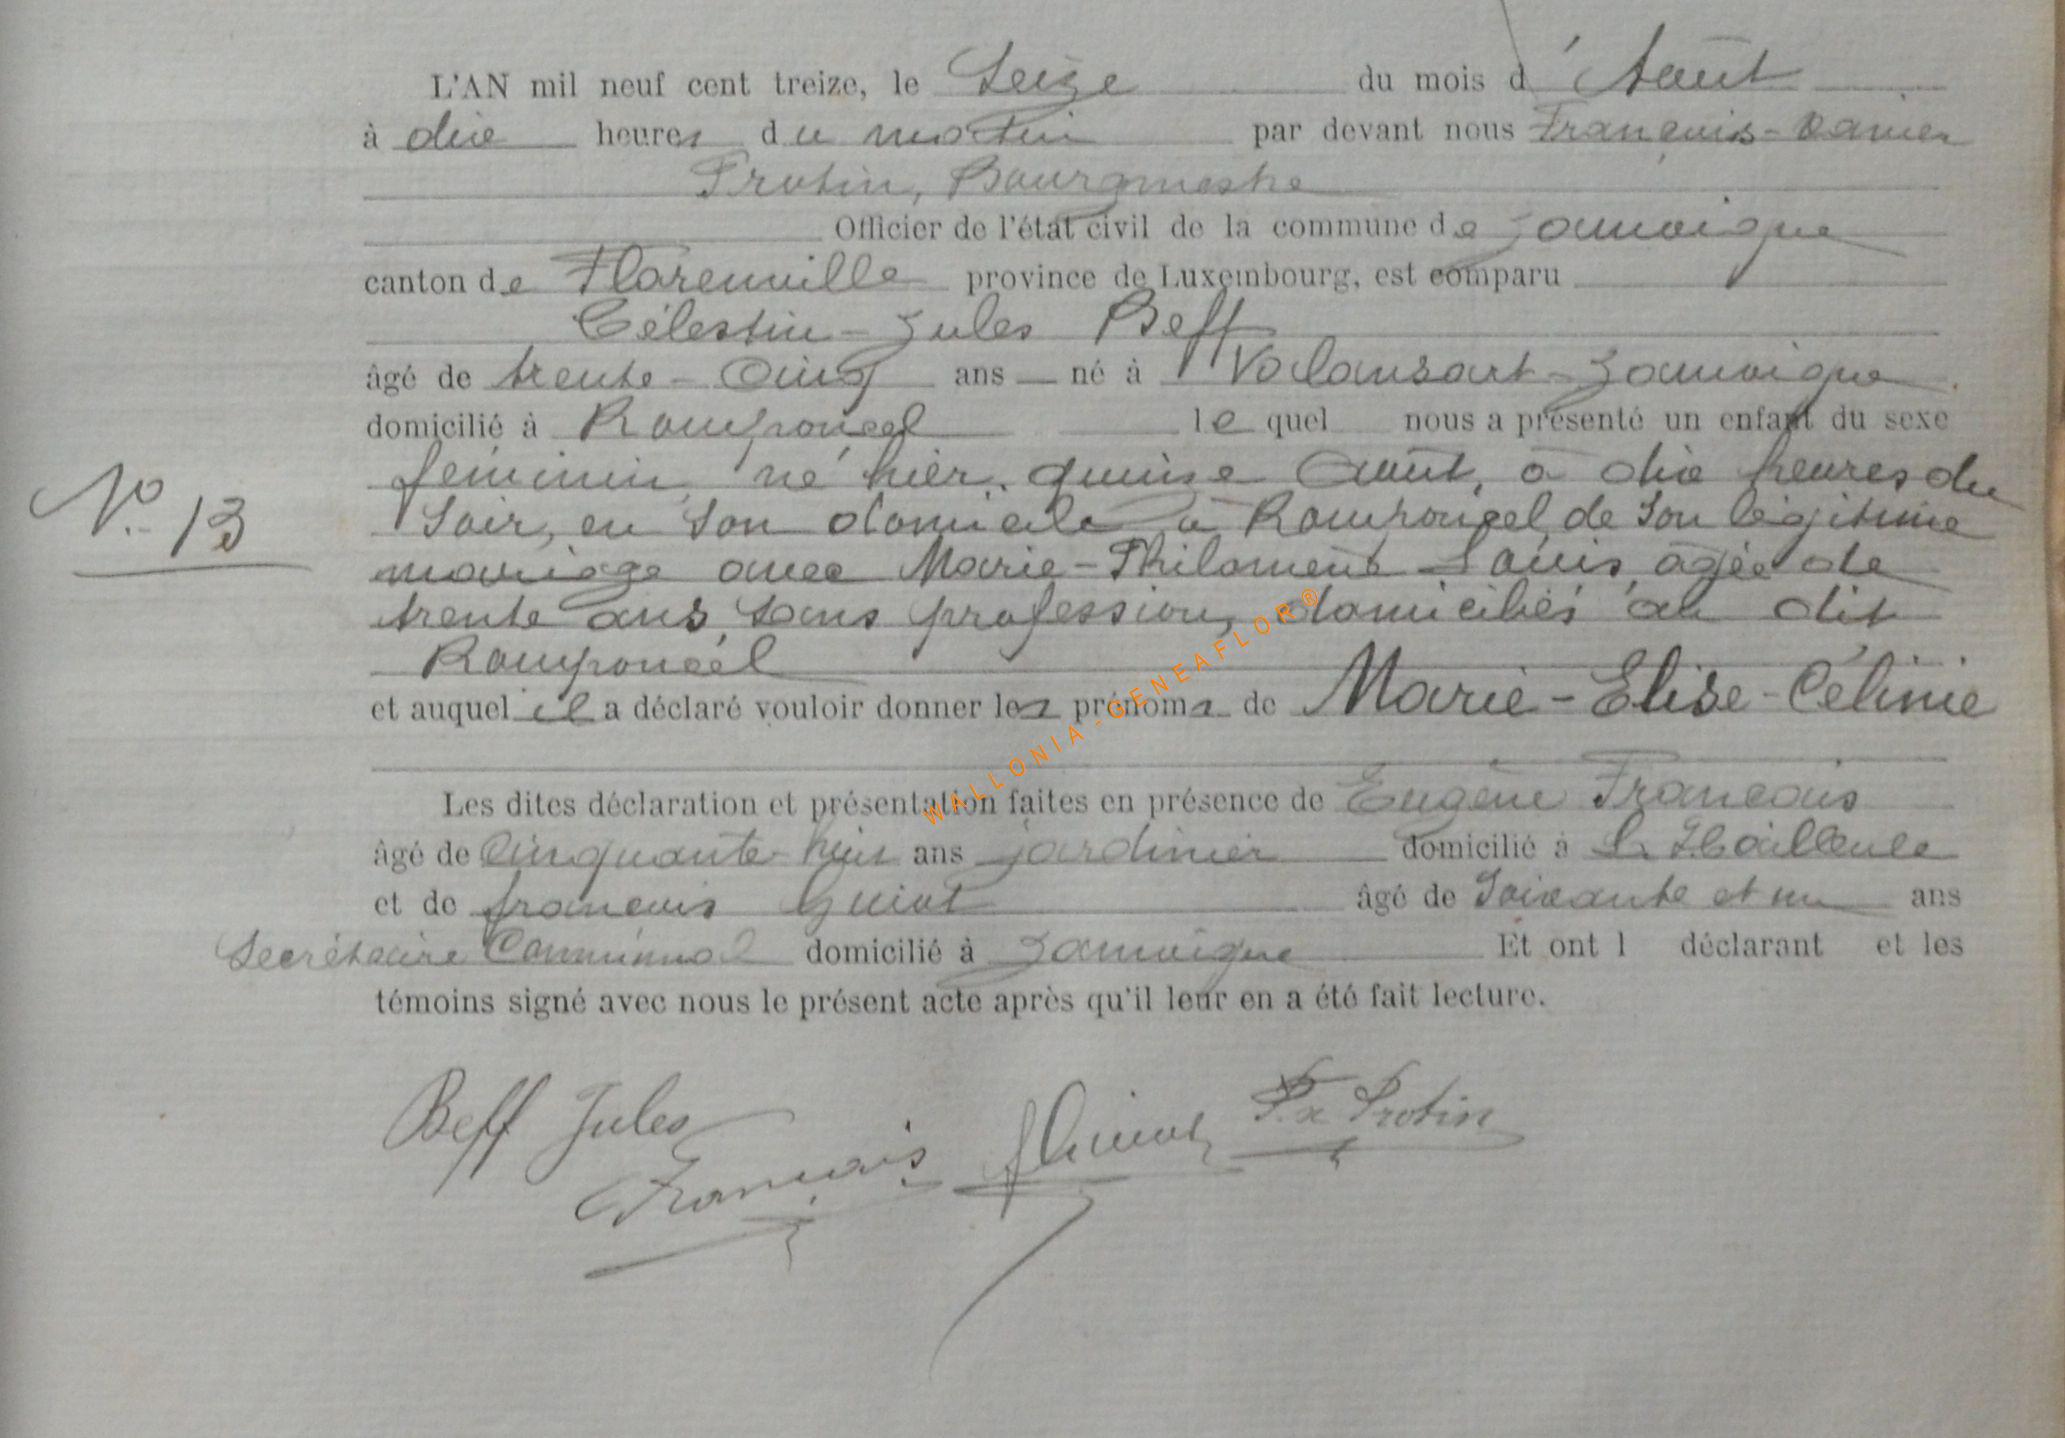 L'AN mil neuf cent treize, le Seize du mois d'Août
à dix heures du matin par devant nous François-Xavier
Protin, Bourgmestre
Officier de l'état civil de la commune de Jamoigne
canton de Florenville province de Luxembourg, est comparu
Célestin-Jules Beff
âgé de trente-Cinq ans né à Valansart-Jamoigne
domicilié à Romponcel lequel nous a présenté un enfant du sexe
féminin, né hier, quinze Août, à dix heures du
Soir, en son domicile à Romponcel, de son légitime
N° 13
mariage avec Marie-Philomène Louis, âgée de
trente ans, sans profession, domiciliés au dit
Romponcel
et auquel il a déclaré vouloir donner les prénoms de Marie-Elise-Célinie
WALLONIA-GENEAFLOR®
Les dites déclaration et présentation faites en présence de Eugène François
âgé de Cinquante-huit ans jardinier domicilié à
et de françois Guiot âgé de Soixante et un ans
Secrétaire Communal domicilié à Jamoigne Et ont l déclarant et les
témoins signé avec nous le présent acte après qu'il leur en a été fait lecture.
Beff Jules
François
fGuiot
Fx Protin